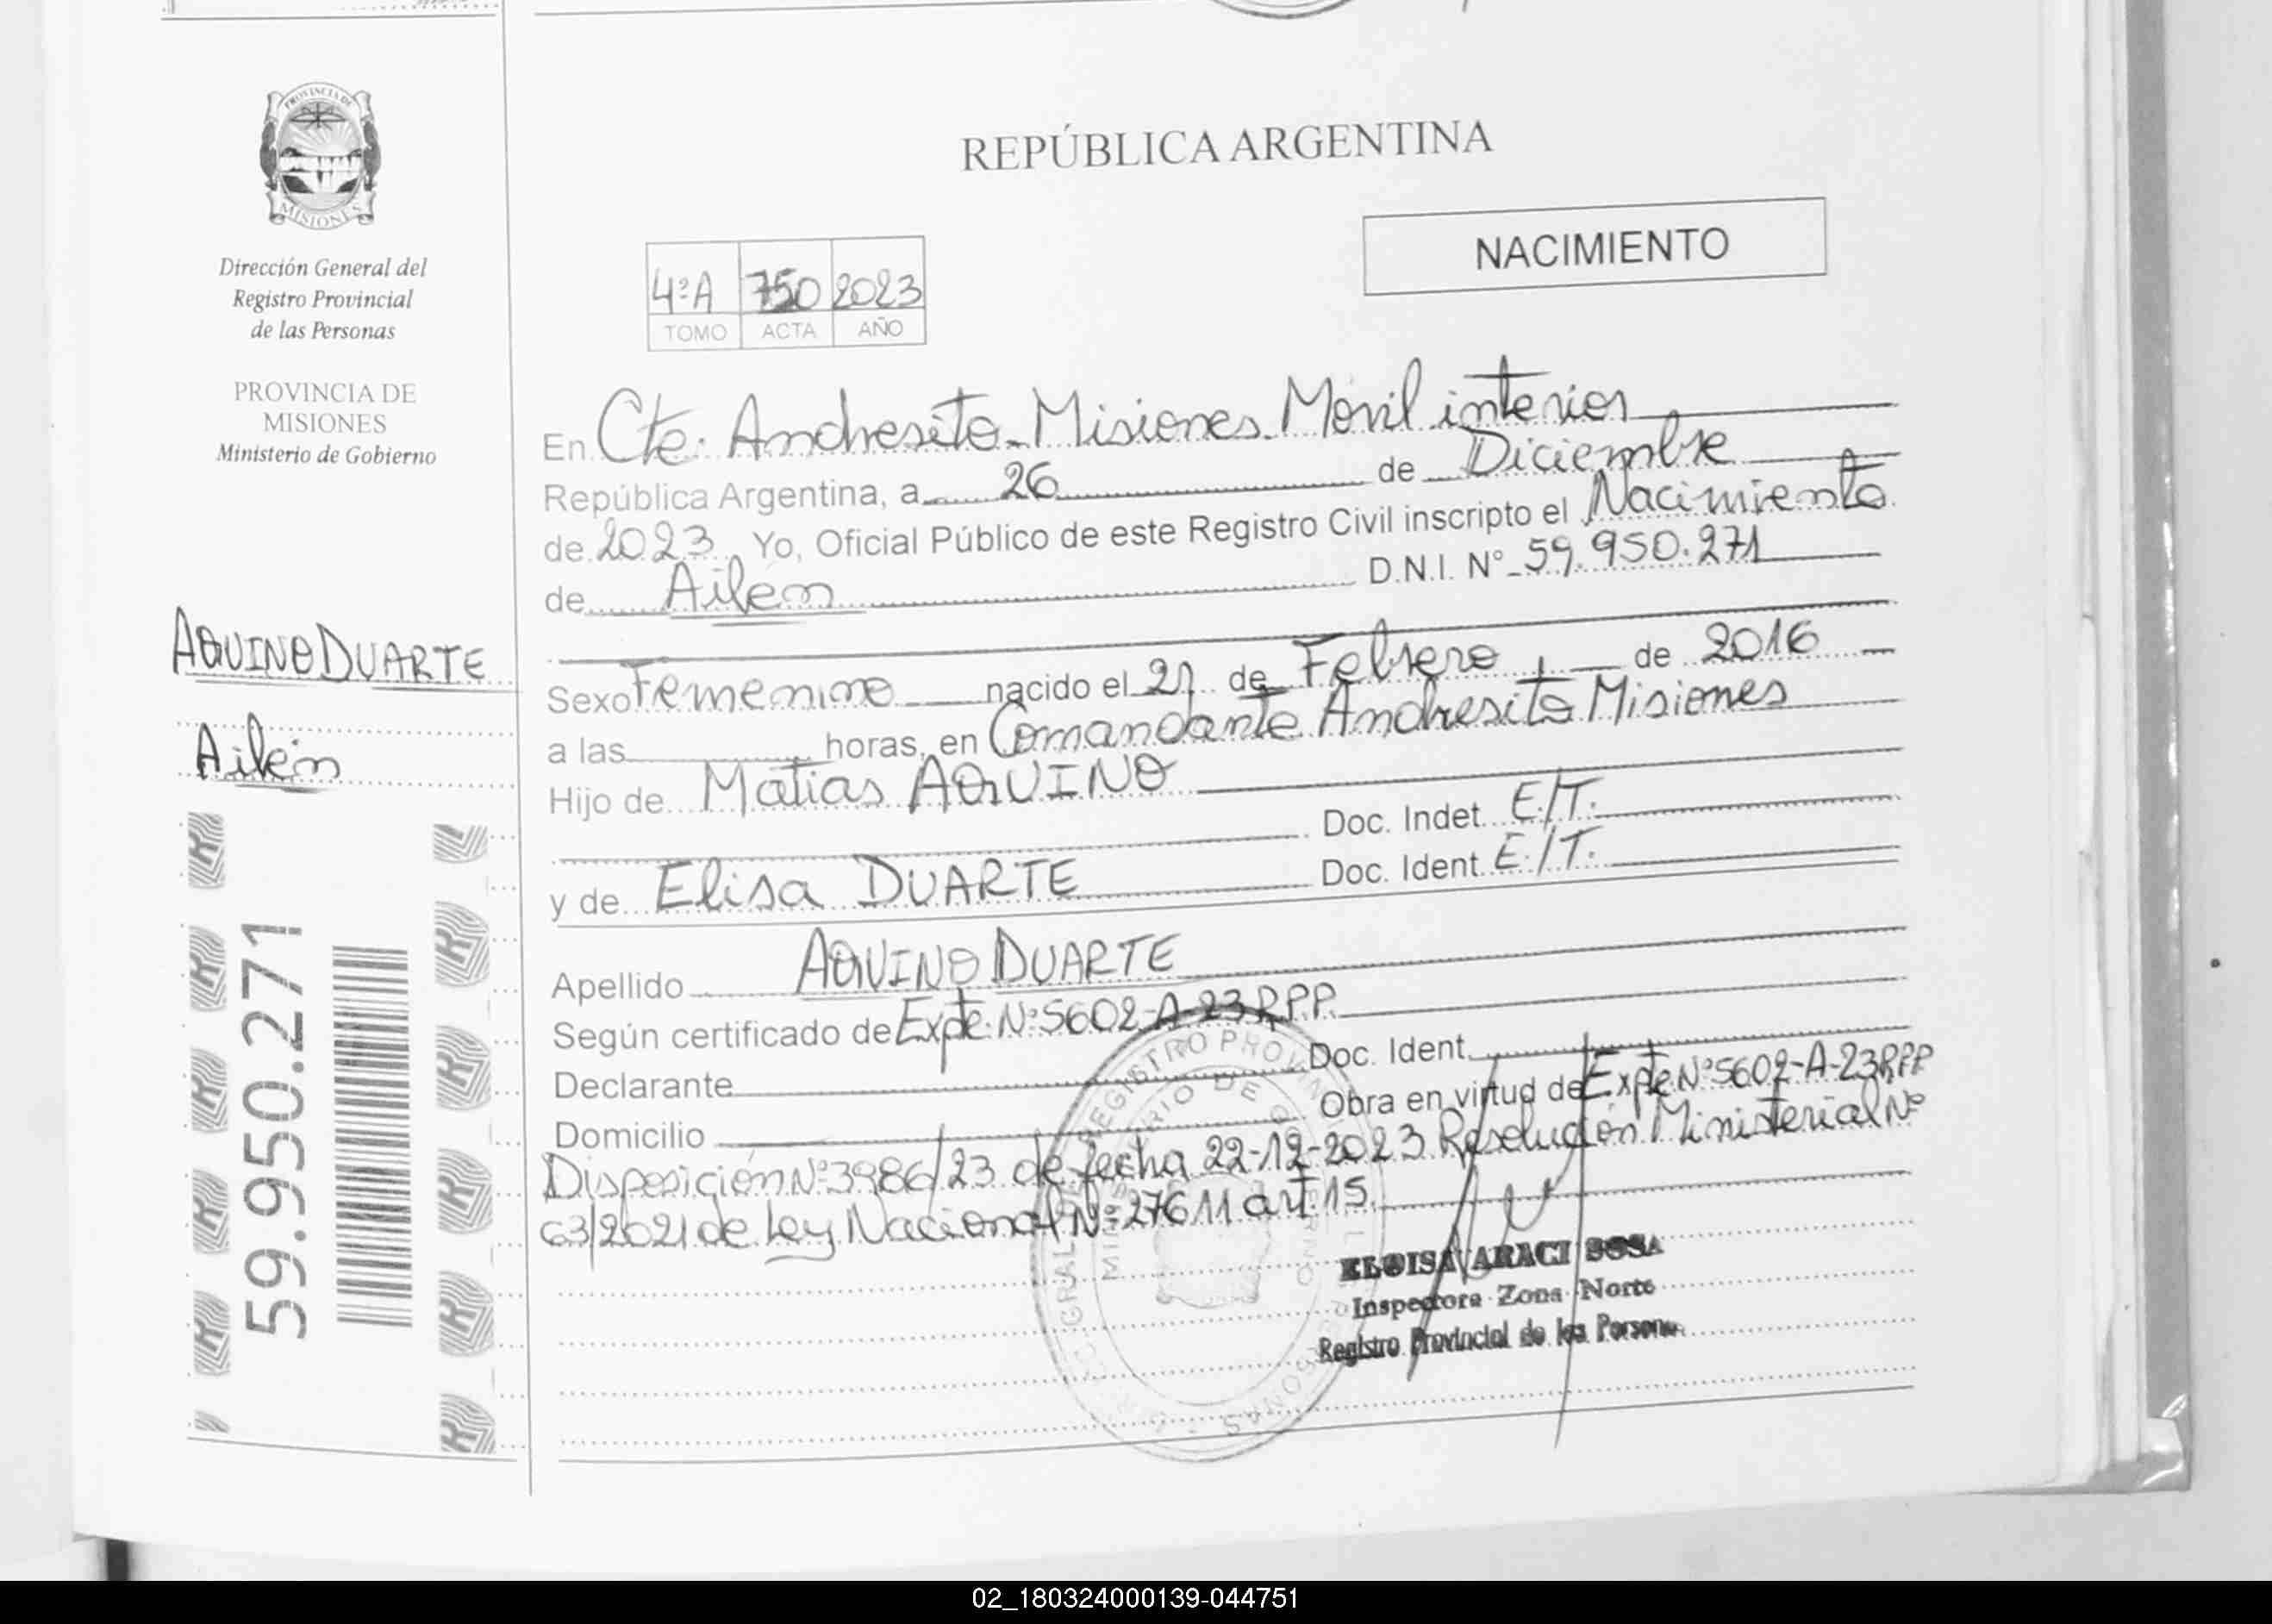 PROVINCIA DE
MISIONES
Dirección General del
Registro Provincial
de las Personas
PROVINCIA DE
MISIONES
Ministerio de Gobierno
AQUINO DUARTE
Ailén
59.950.271
REPÚBLICA ARGENTINA
NACIMIENTO
4ºA 750 2023
TOMO ACTA AÑO
En Cte. Andresito - Misiones Móvil interior
República Argentina, a 26 de Diciembre
de 2023 Yo, Oficial Público de este Registro Civil inscripto el Nacimiento
de Ailen D.N.I. Nº 59.950.271
Sexo Femenino nacido el de Febrero de 2016
a las horas, en Comandante Andresito Misiones
Hijo de Matias AQUINO
Doc. Indet. E/T.
y de Elisa DUARTE Doc. Ident. E./T.
Apellido AQUINO DUARTE
Según certificado de Expte. Nº 5602-A-23 RPP.
Declarante Doc. Ident.
Domicilio Obra en virtud de Expte Nº 5602-A-23 RPP
Disposición Nº 3986/23 de fecha 22-12-2023 Resolución Ministerial Nº
63/2021 de Ley Nacional Nº 27611 art. 15.
ELOISA ARACI SOSA
Inspectora Zona Norte
Registro Provincial de las Personas
02_180324000139-044751